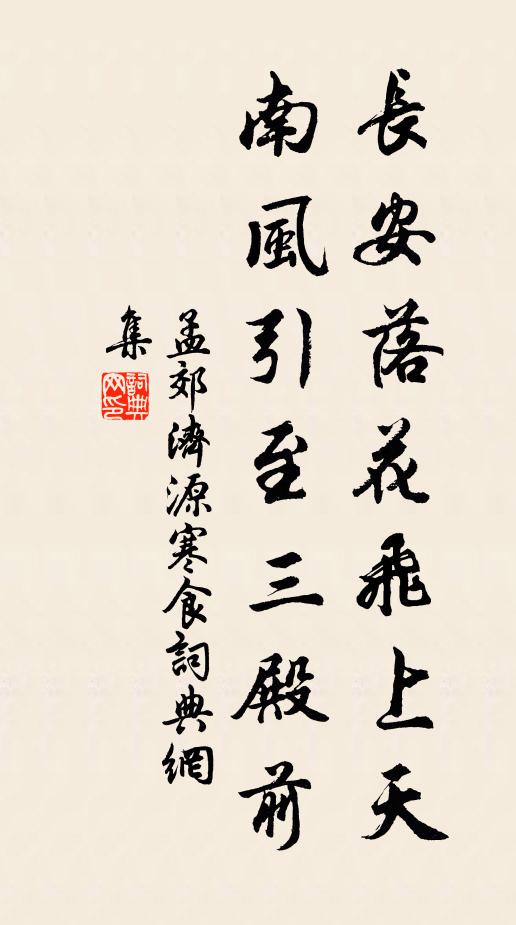 長安落花飛上天
南風引至三殿前
孟郊濟源寒食詞典網
集
詞典
网印